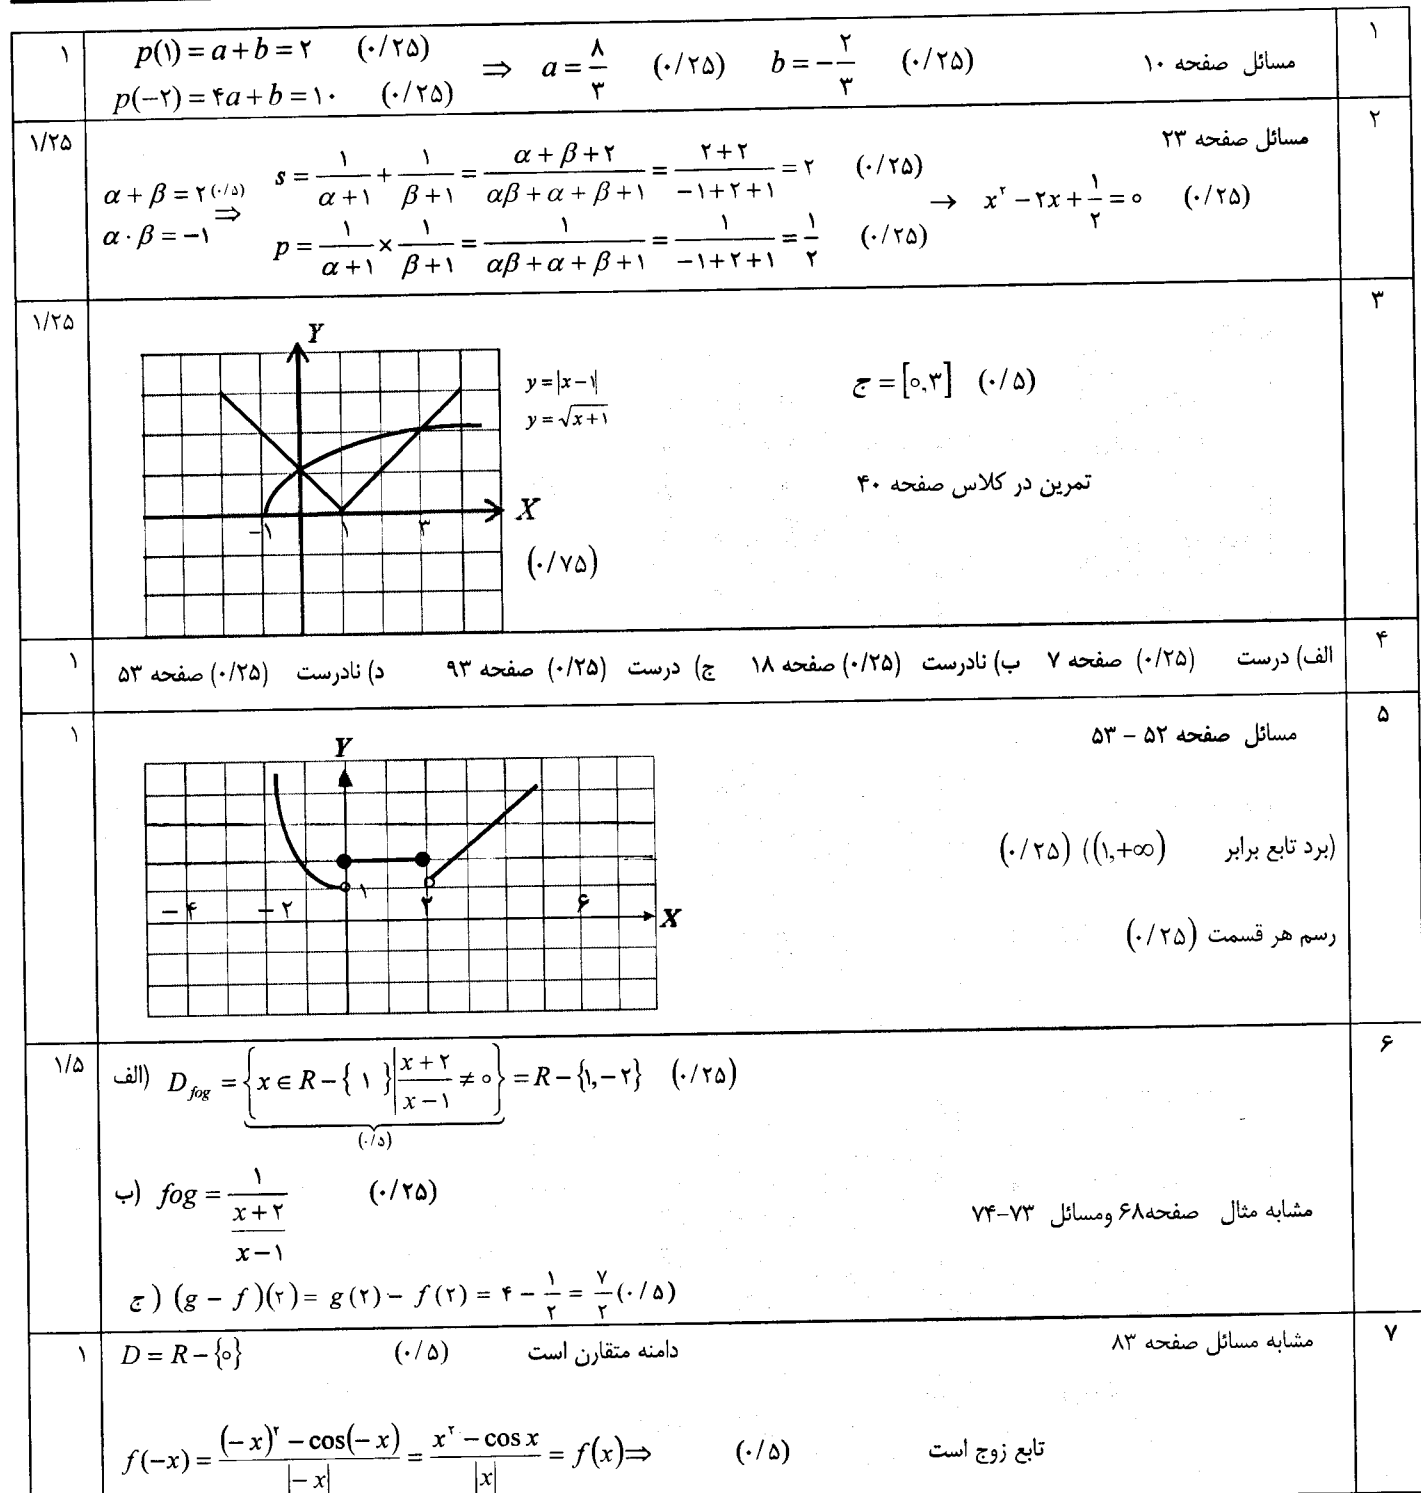 ۱
مسائل صفحه ۱۰
p(۱) = a + b = ۲ (۰/۲۵)
p(−۲) = ۴a + b = ۱۰ (۰/۲۵)
⇒ a = ۸/۳ (۰/۲۵) b = −۲/۳ (۰/۲۵)
۱
۲
مسائل صفحه ۲۳
α + β = ۲ (۰/۵)
α · β = −۱
⇒
s = ۱/(α+۱) + ۱/(β+۱) = (α + β + ۲)/(αβ + α + β + ۱) = (۲+۲)/(−۱+۲+۱) = ۲ (۰/۲۵)
p = ۱/(α+۱) × ۱/(β+۱) = ۱/(αβ + α + β + ۱) = ۱/(−۱+۲+۱) = ۱/۲ (۰/۲۵)
→ x۲ − ۲x + ۱/۲ = ۰ (۰/۲۵)
۱/۲۵
۳
Y
y = |x − ۱|
y = √(x + ۱)
ج = [۰,۳] (۰/۵)
تمرین در کلاس صفحه ۴۰
X
−۱ ۱ ۳
(۰/۷۵)
۱/۲۵
۴
الف) درست (۰/۲۵) صفحه ۷ ب) نادرست (۰/۲۵) صفحه ۱۸ ج) درست (۰/۲۵) صفحه ۹۳ د) نادرست (۰/۲۵) صفحه ۵۳
۱
۵
مسائل صفحه ۵۲ – ۵۳
Y
(برد تابع برابر (۱,+∞)) (۰/۲۵)
۱
−۴ −۲ ۲ ۶
X
رسم هر قسمت (۰/۲۵)
۱
۶
الف) D_fog = {x ∈ R − {۱} | (x+۲)/(x−۱) ≠ ۰} = R − {۱,−۲} (۰/۲۵)
(۰/۵)
ب) fog = ۱/((x+۲)/(x−۱)) (۰/۲۵)
مشابه مثال صفحه۶۸ ومسائل ۷۳-۷۴
ج) (g − f)(۲) = g(۲) − f(۲) = ۴ − ۱/۲ = ۷/۲ (۰/۵)
۱/۵
۷
مشابه مسائل صفحه ۸۳
D = R − {۰} (۰/۵) دامنه متقارن است
f(−x) = ((−x)۲ − cos(−x))/|−x| = (x۲ − cos x)/|x| = f(x) ⇒ (۰/۵) تابع زوج است
۱